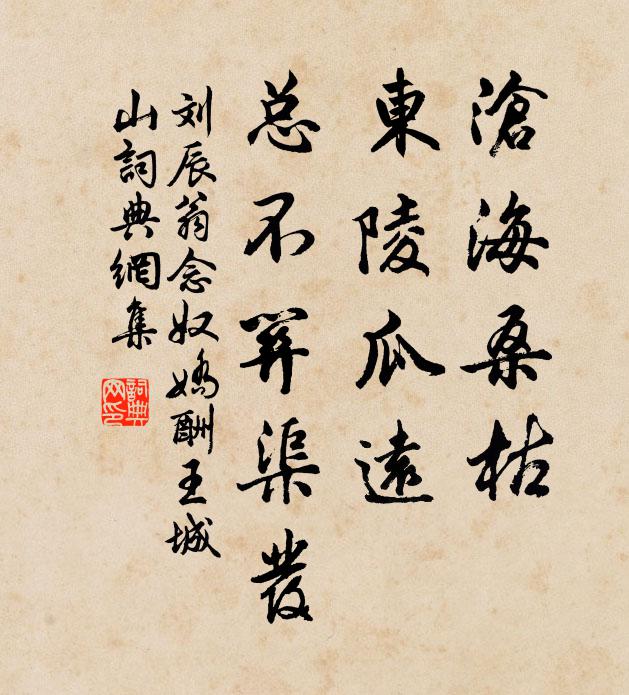 滄海桑枯
東陵瓜遠
总不筭渠發
刘辰翁念奴嬌酬王城
山詞典網集
詞典網印